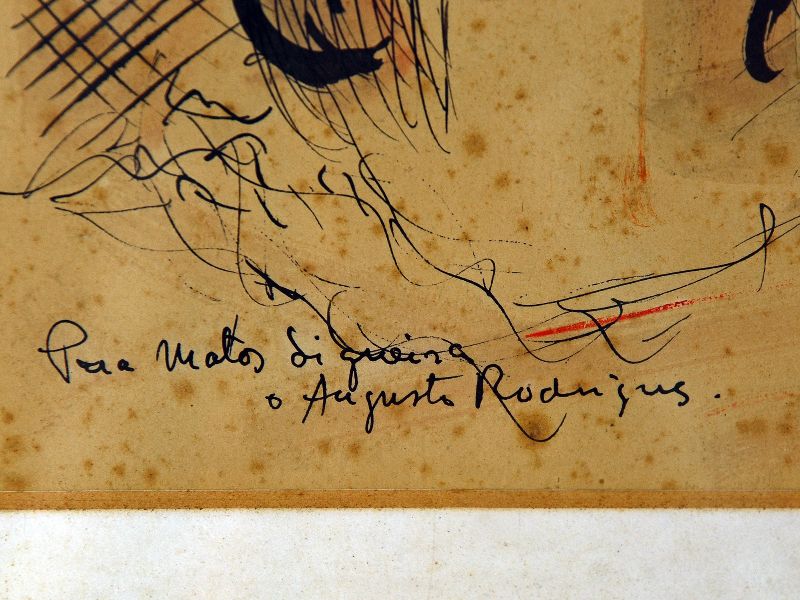 Para Matos Siqueira
o Augusto Rodrigues.